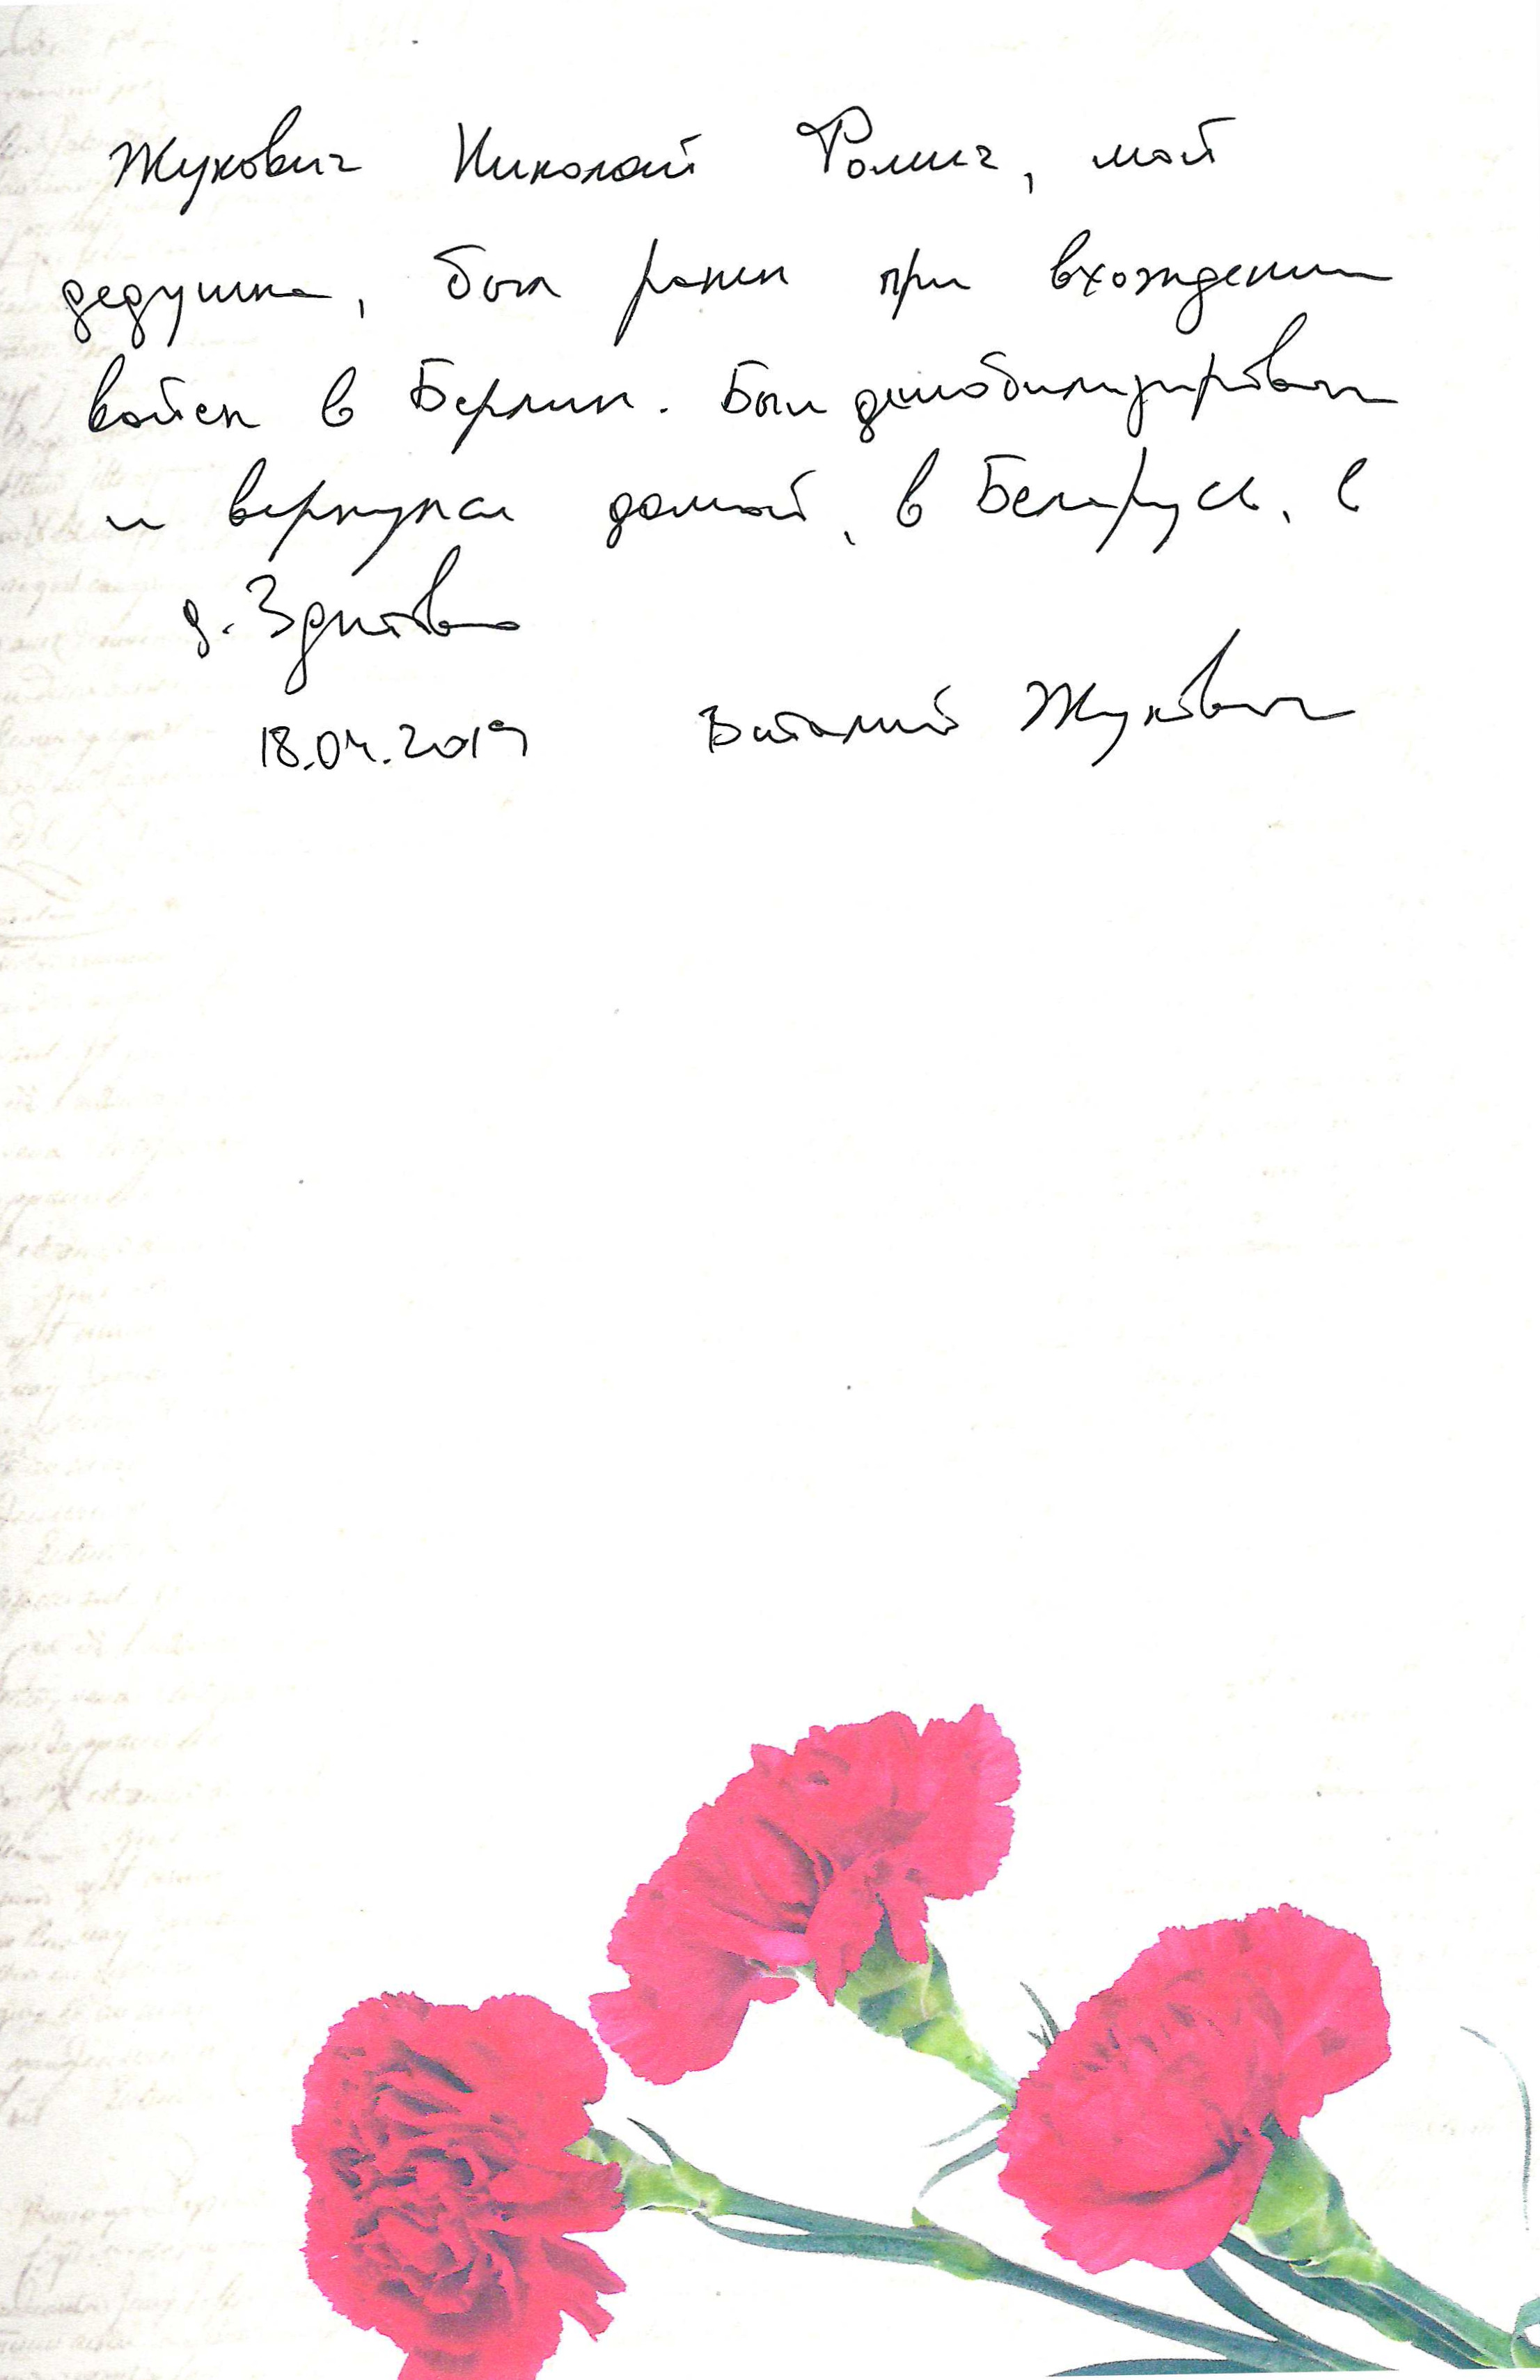 Жукович Николай Фомич, мой
дедушка, был ранен при вхождении
войск в Берлин. Был демобилизирован
и вернулся домой, в Беларусь, в
д. Здитово
18.04.2019 Виталий Жукович